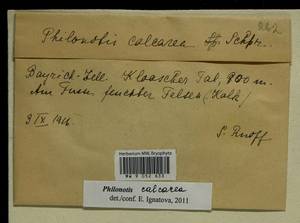 262
Philonotis calcarea Schpr.
Bayrich-Zell. Kloascher Tal, 900 m.
Am Fuss feuchter Felsen (Kalk)
3 IX 1911.
S. Ruoff
Herbarium MW, Bryophyta
MW 9 052 633
Philonotis calcarea
det./conf. E. Ignatova, 2011